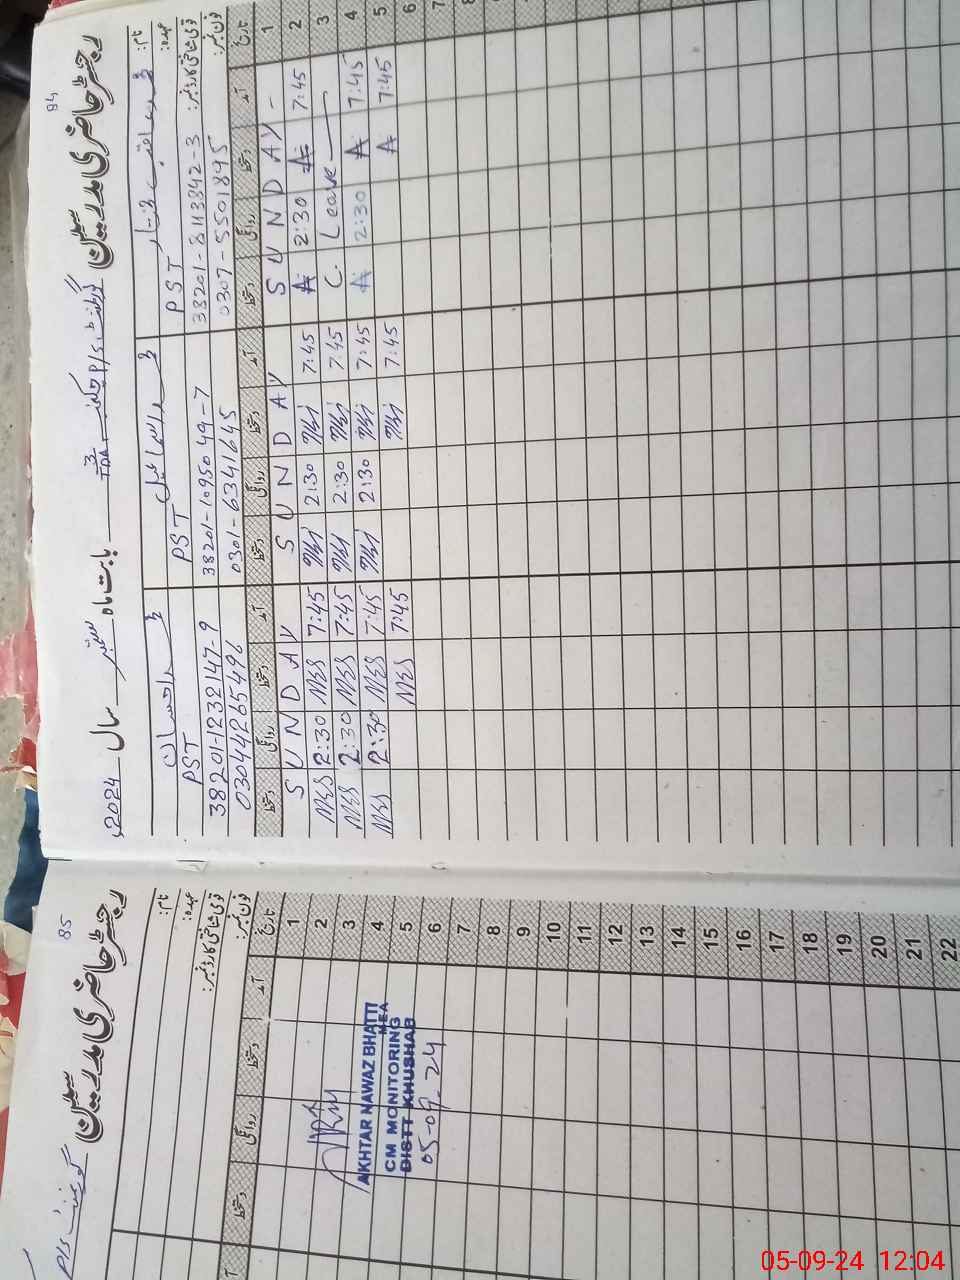 84
رجسٹر حاضری مدرسین
گورنمنٹ P/S چک نمبر 3/TDA بابت ماہ ستمبر سال 2024ء
نام:
محمد اسماعیل
محمد احسان
عہدہ: PST PST PST
قومی شناختی کارڈ نمبر: 38201-8113842-3 38201-1095049-7 38201-1232147-9
فون نمبر: 0307-5501845 0301-6341645 03044265496
تاریخ آمد دستخط روانگی دستخط آمد دستخط روانگی دستخط آمد دستخط روانگی دستخط
1 - S U N D A Y S U N D A Y S U N D A Y
2 7:45 A 2:30 A 7:45 2:30 7:45 MES 2:30 MES
3 C. Leave 7:45 2:30 7:45 MES 2:30 MES
4 7:45 A 2:30 A 7:45 2:30 7:45 MES 2:30 MES
5 7:45 A 7:45 7:45 MES
6
7
8
85
رجسٹر حاضری مدرسین
گورنمنٹ P/S
نام:
عہدہ:
قومی شناختی کارڈ نمبر:
فون نمبر:
تاریخ آمد دستخط روانگی دستخط
1
2
3
4
5
6
7
8
9
10
11
12
13
14
15
16
17
18
19
20
21
22
AKHTAR NAWAZ BHATTI
MEA
CM MONITORING
DISTT KHUSHAB
05-09-24
05-09-24 12:04